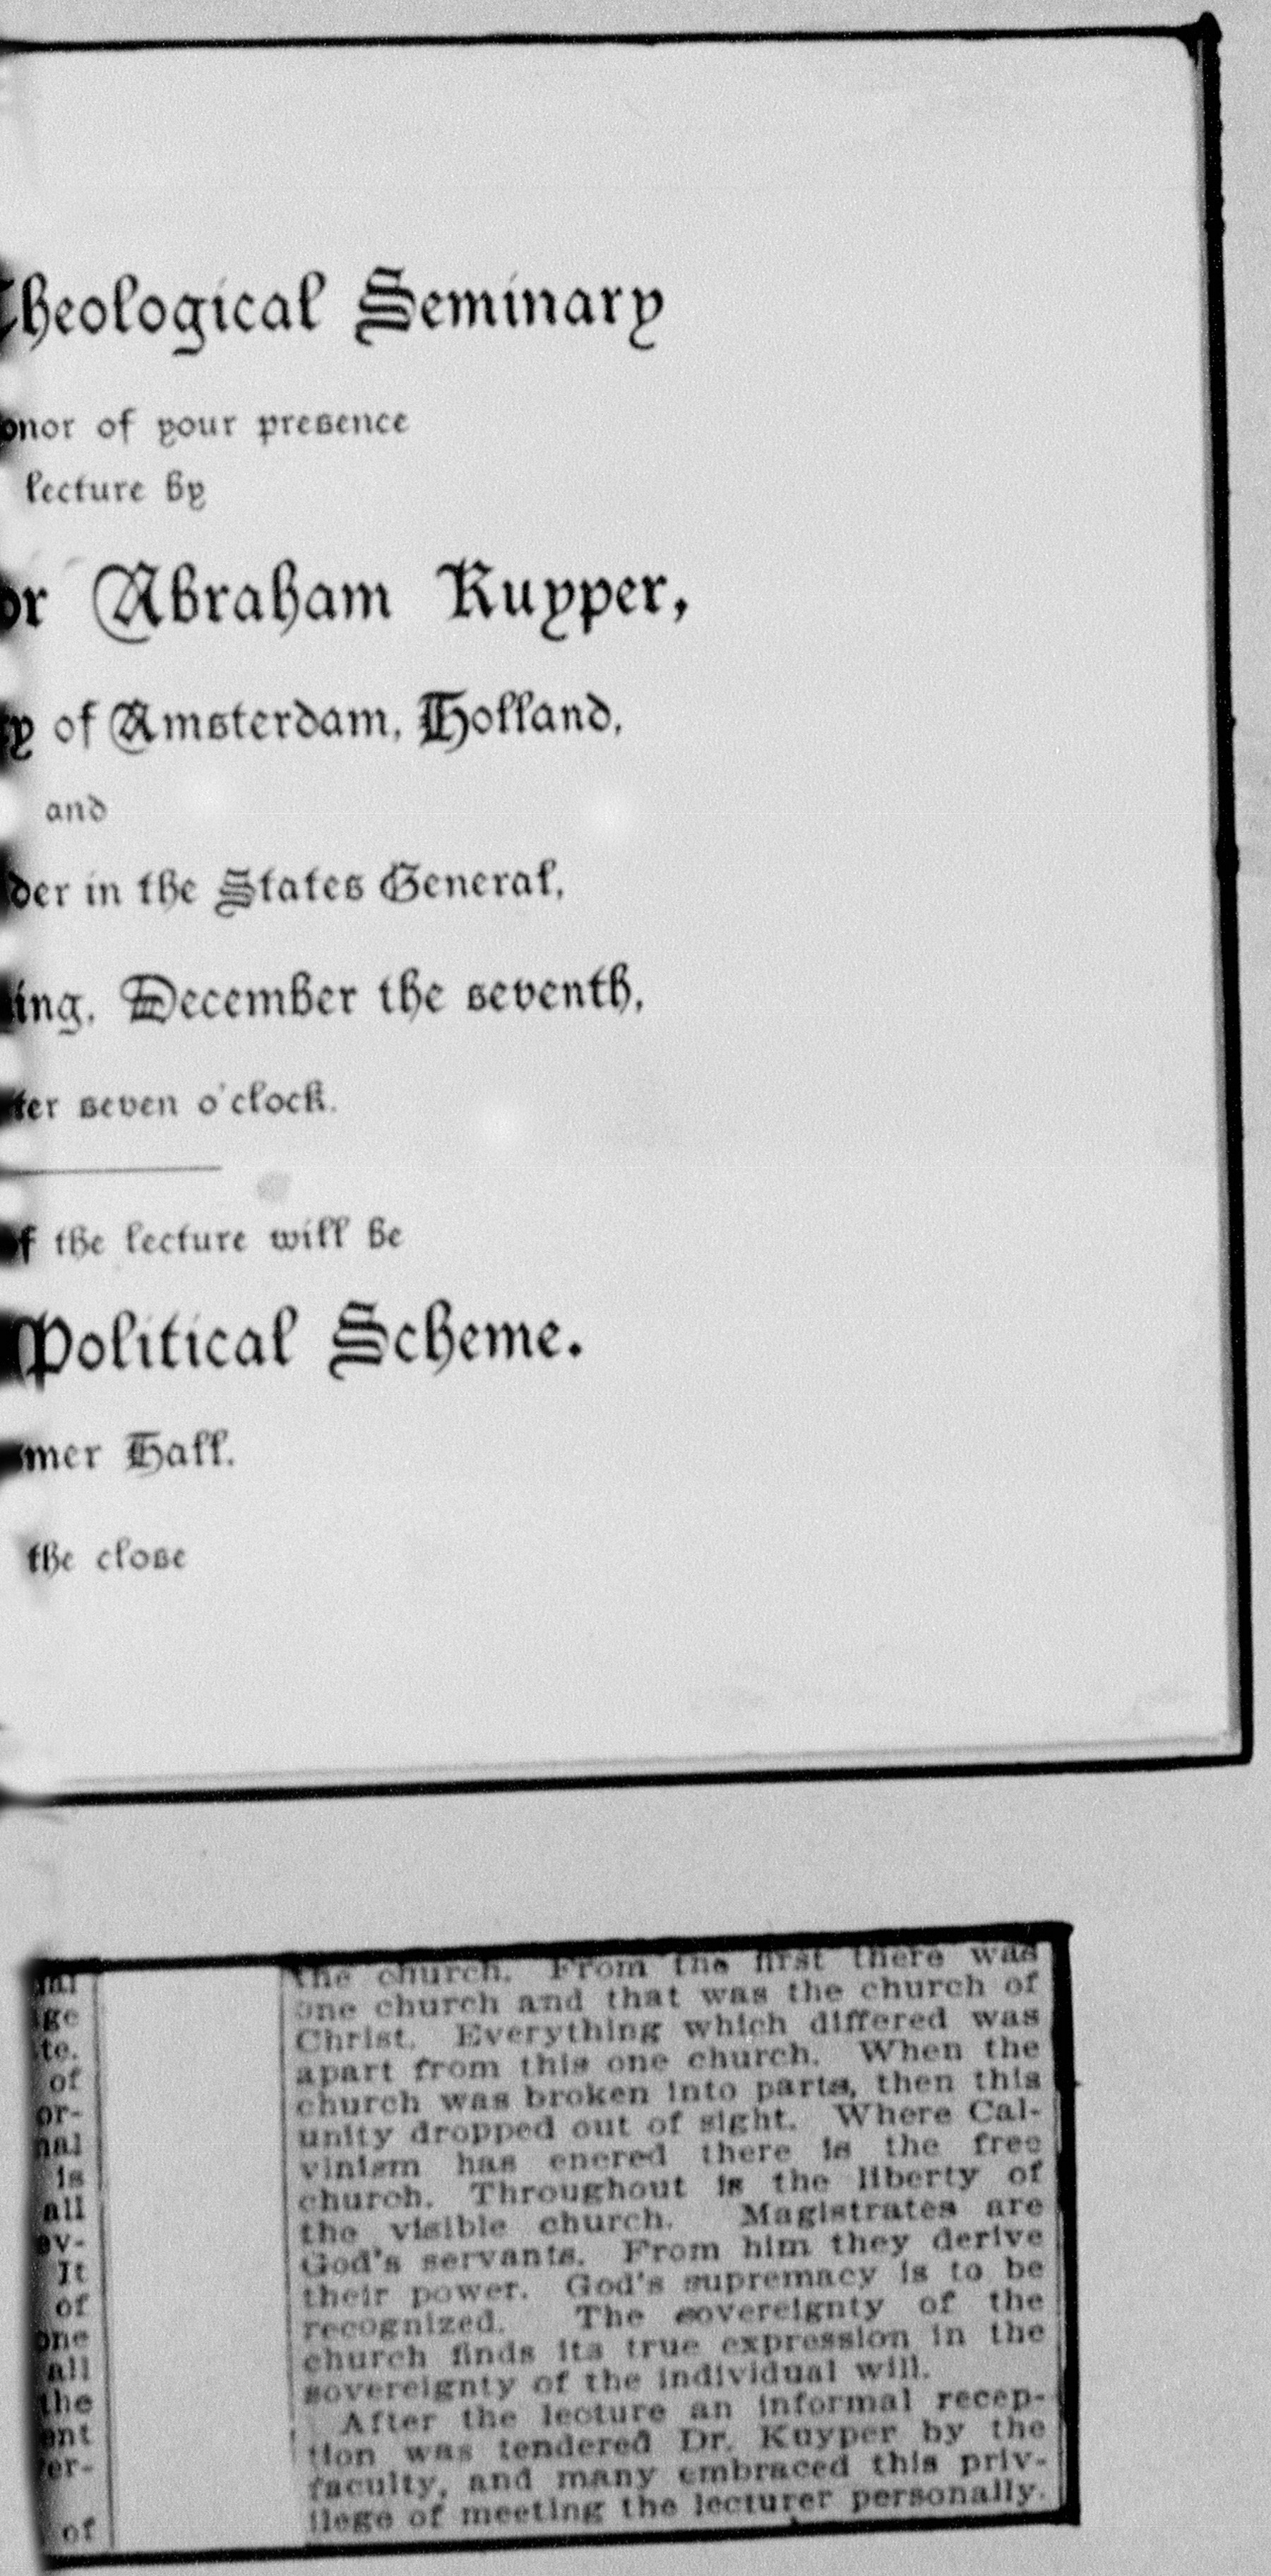 Theological Seminary
onor of your presence
lecture by
or Abraham Kuyper,
y of Amsterdam, Holland,
and
der in the States General,
ing, December the seventh,
ter seven o'clock.
f the lecture will be
Political Scheme.
mer Hall.
the close
ge
te.
of
or-
nal
is
all
ev-
It
of
one
all
the
ent
er-
of
the church. From the first there was
one church and that was the church of
Christ. Everything which differed was
apart from this one church. When the
church was broken into parts, then this
unity dropped out of sight. Where Cal-
vinism has enered there is the free
church. Throughout is the liberty of
the visible church. Magistrates are
God's servants. From him they derive
their power. God's supremacy is to be
recognized. The sovereignty of the
church finds its true expression in the
sovereignty of the individual will.
After the lecture an informal recep-
tion was tendered Dr. Kuyper by the
faculty, and many embraced this priv-
ilege of meeting the lecturer personally.